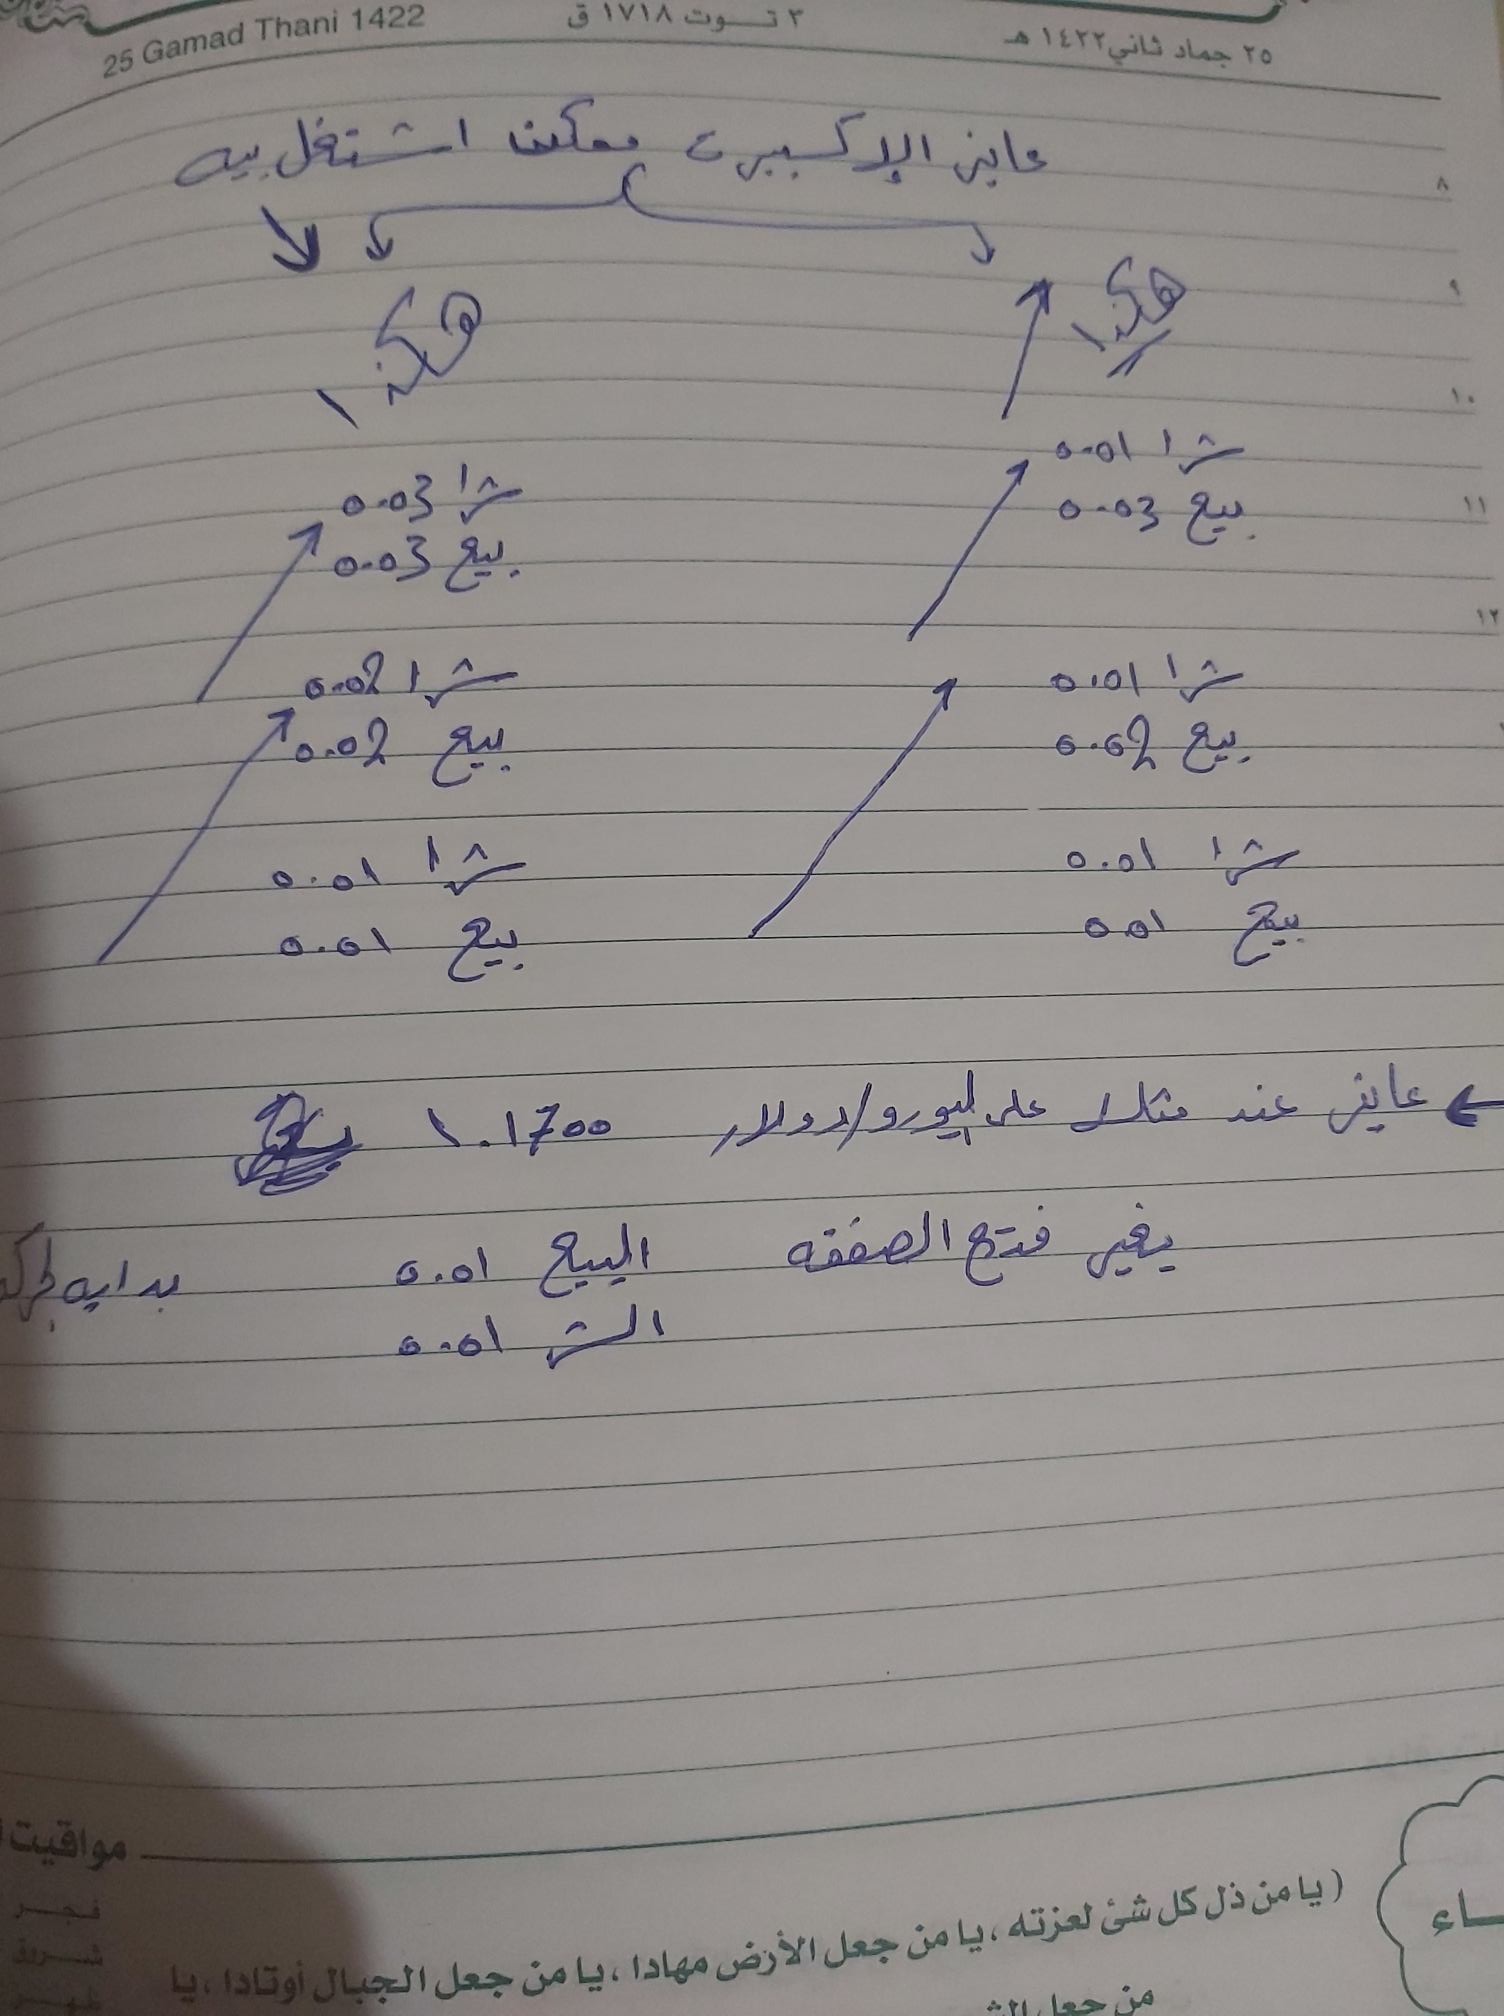 25 Gamad Thani 1422
٣ تـوت ١٧١٨ ق
٢٥ جماد ثاني ١٤٢٢ هـ
عايز الإكسبيرت ممكن اشتغل بيه
٨
٩
١٠
١١
١٢
هكذا
شرا 0.01
بيع 0.03
شرا 0.01
بيع 0.02
شرا 0.01
بيع 0.01
هكذا
شرا 0.03
بيع 0.03
شرا 0.02
بيع 0.02
شرا 0.01
بيع 0.01
عايز عند مثلا على اليورو/دولار 1.1700
يغير فتح الصفقه البيع 0.01 بدايه
الشرا 0.01
مواقيت
فجـر
شروق
ظهـر
(يا من ذل كل شئ لعزته، يا من جعل الأرض مهادا، يا من جعل الجبال أوتادا، يا
من جعل